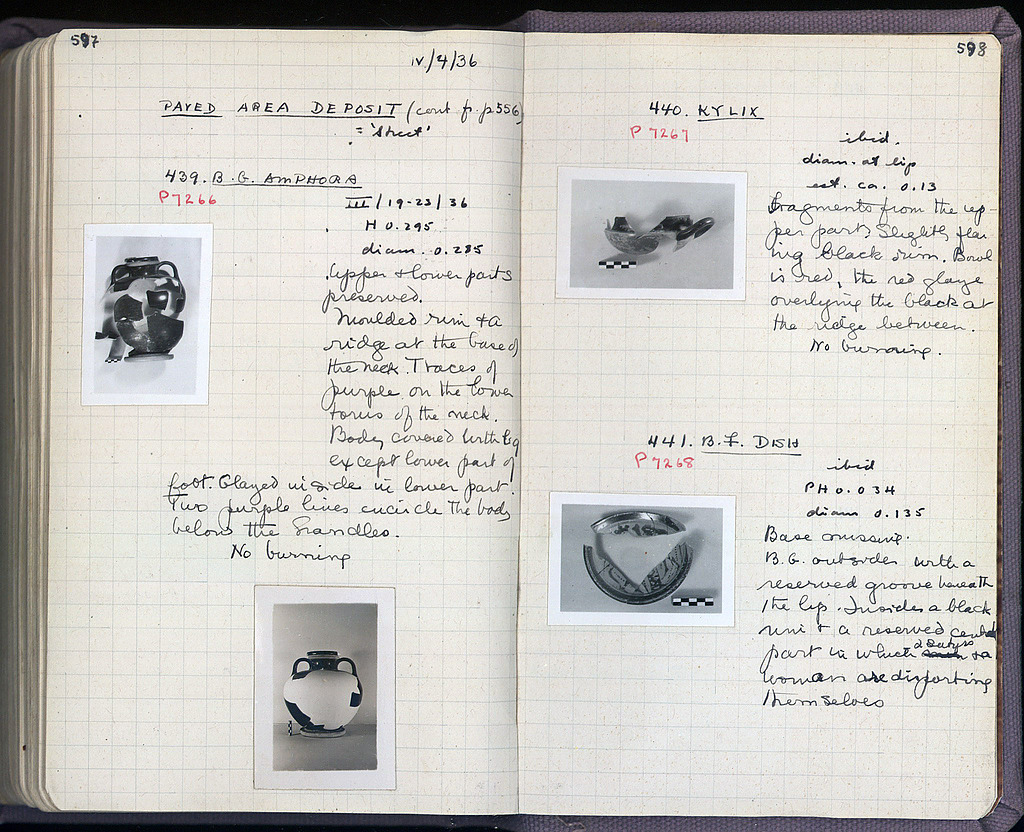 597
IV/4/36
PAVED AREA DEPOSIT (cont fr. p556)
= 'Street'
439. B.G. AMPHORA
P 7266
III/19-23/36
H 0.295
diam. 0.285
Upper & lower parts
preserved.
Moulded rim & a
ridge at the base of
the neck. Traces of
purple on the lower
torus of the neck.
Body covered with bg
except lower part of
foot. Glazed inside in lower part.
Two purple lines encircle the body
below the handles.
No burning
598
440. KYLIX
P 7267
ibid.
diam. at lip
est. ca. 0.13
Fragments from the up-
per part. Slightly flar-
ing black rim. Bowl
is red, the red glaze
overlying the black at
the ridge between.
No burning.
441. B.F. DISH
P 7268
ibid
PH 0.034
diam 0.135
Base missing.
B.G. outside with a
reserved groove beneath
the lip. Inside a black
rim & a reserved central
part in which 2 satyrs & a
woman are disporting
themselves